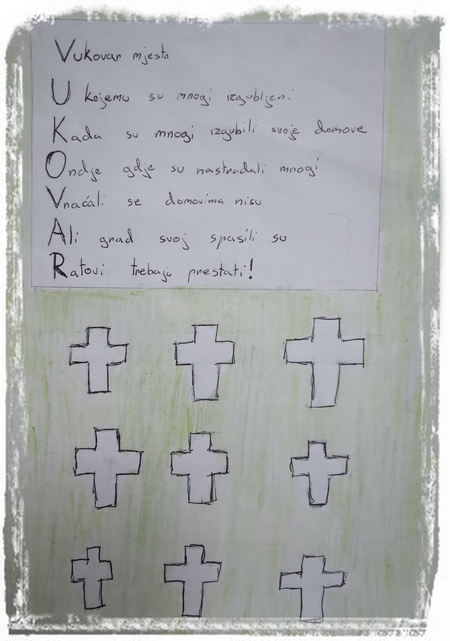 Vukovar mjesto
U kojemu su mnogi izgubljeni
Kada su mnogi izgubili svoje domove
Ondje gdje su nastradali mnogi
Vraćali se domovima nisu
Ali grad svoj spasili su
Ratovi trebaju prestati!